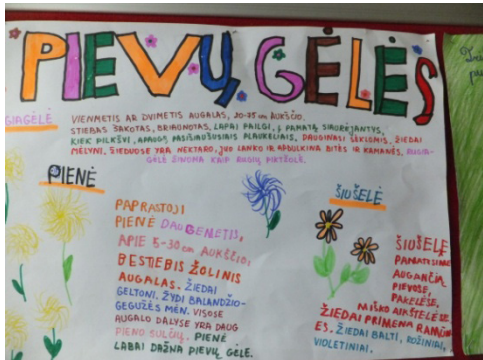 PIEVŲ GĖLĖS
VIENMETIS AR DVIMETIS AUGALAS, 20-75 cm AUKŠČIO.
STIEBAS ŠAKOTAS, BRIAUNOTAS, LAPAI PAILGI, Į PAMATĄ SIAURĖJANTYS,
KIEK PILKŠVI, APAUGĘ PASIŠIAUŠUSIAIS PLAUKELIAIS, DAUGINASI SĖKLOMIS, ŽIEDAI
MĖLYNI, ŽIEDUOSE YRA NEKTARO, JUO LANKO IR APDULKINA BITĖS IR KAMANĖS, RUGIA-
GĖLĖ ŽINOMA KAIP RUGIŲ PIKTŽOLĖ.
GIAGĖLĖ
PIENĖ
PAPRASTOJI
PIENĖ DAUGENETIS,
APIE 5-30 cm AUKŠČIO,
BESTIEBIS ŽOLINIS
AUGALAS. ŽIEDAI
GELTONI. ŽYDI BALANDŽIO-
GEGUŽĖS MĖN. VISOSE
AUGALO DALYSE YRA DAUG
PIENO SULČIŲ. PIENĖ
LABAI DAŽNA PIEVŲ GĖLĖ.
ŠIUŠELĖ
ŠIUŠELĘ
PAMATYSIME
AUGANČIĄ
PIEVOSE,
PAKELĖSE,
MIŠKO AIKŠTELĖSE.
ŽIEDAI PRIMENA RAMUN
ES. ŽIEDAI BALTI, ROŽINIAI,
VIOLETINIAI.